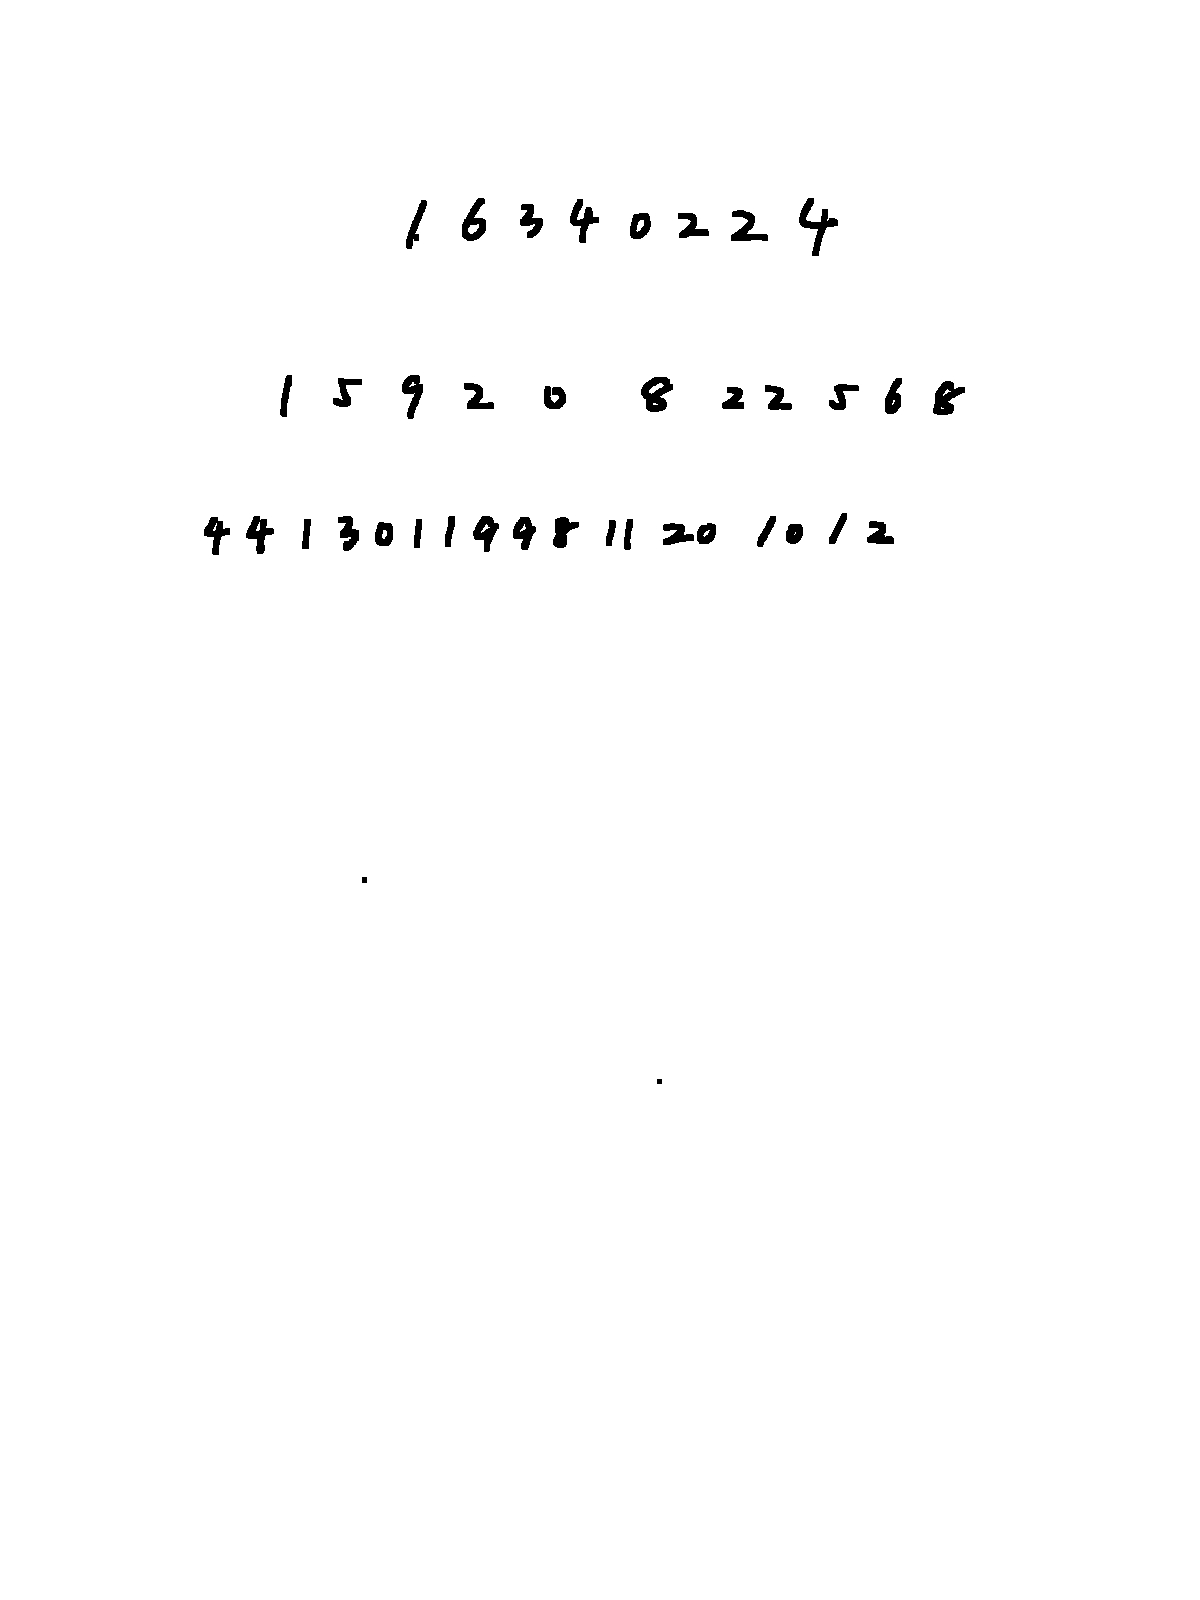 16340224
15920822568
441301199811201012